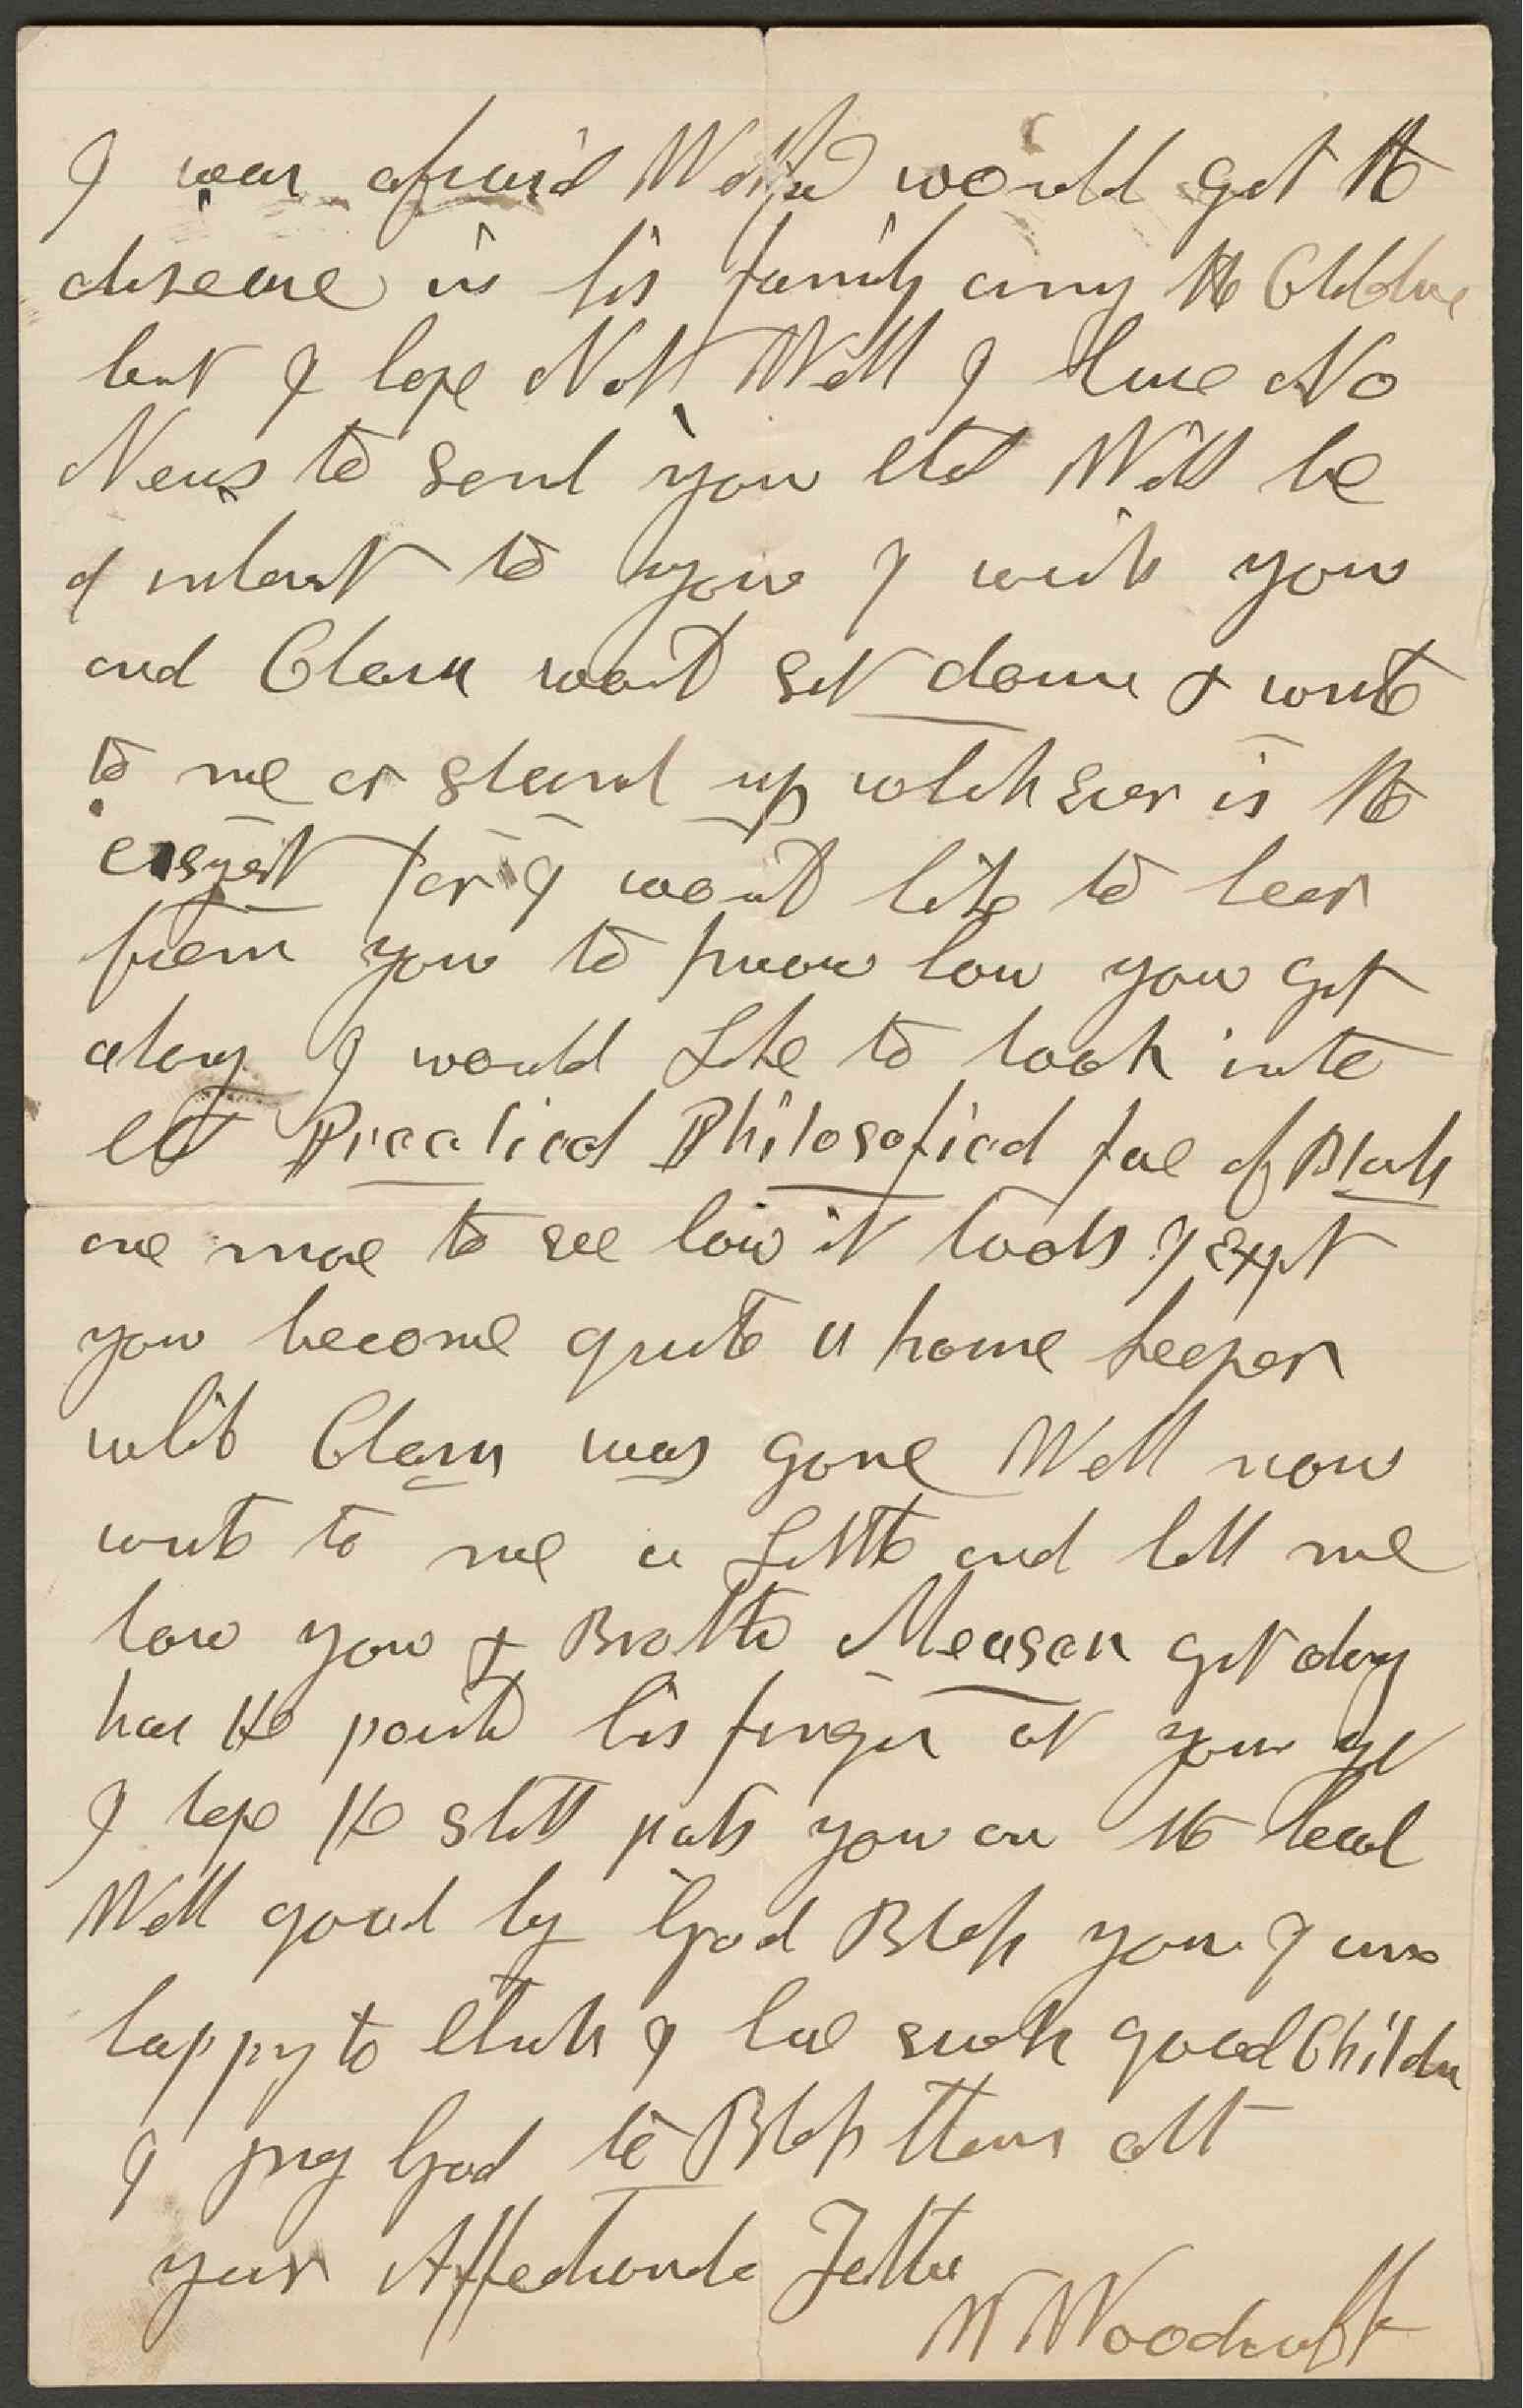 I was afraid would get the
disease in his family among the Children
but I hope Not Well I have No
News to send you that Will be
of interst to you I wish you
and Clara would set down & write
to me or stand up whichever is the
easyest for I would like to hear
from you to know how you get
along I would Like to look into
that Practical Philosofical face of Blanch
one more to see how it looks I expet
you become quite a home keeper
while Clara was gone Well now
write to me a Little and tell me
how you & Brother get along
has He pointed his finger at you yet
I hope He still pats you on the head
Well good by God Bless you I am
happy to think I have such good Childen
I pray God to Bless them all
your Affectionate Father
W Woodruff